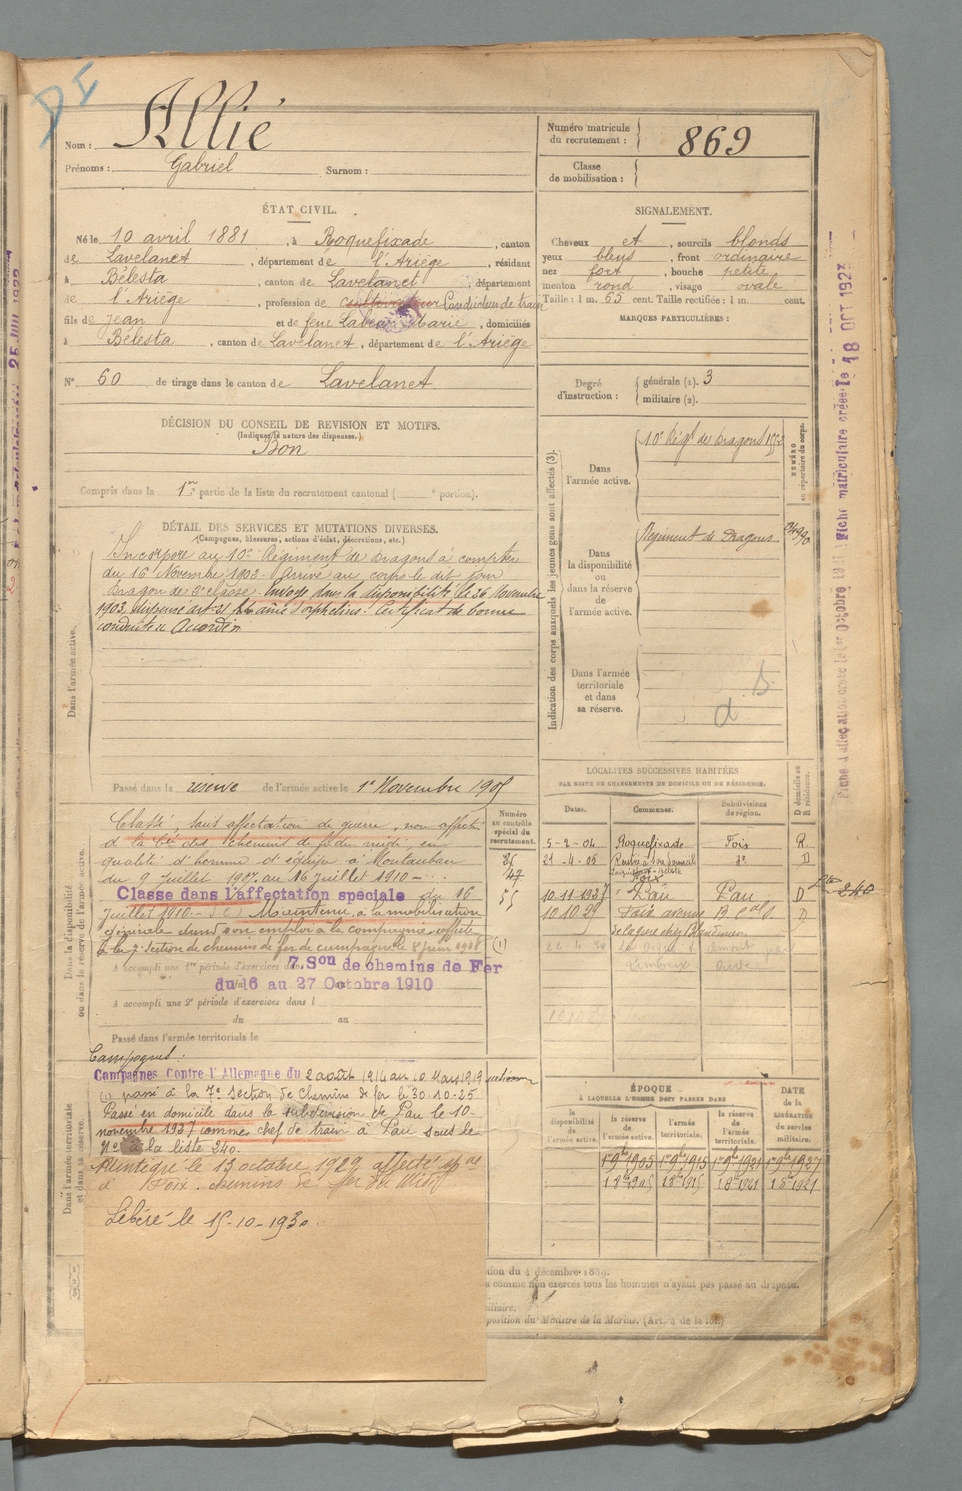 DE
Nom : Allié
Prénoms : Gabriel Surnom :
Numéro matricule du recrutement : 869
Classe de mobilisation :
ÉTAT CIVIL.
Né le 10 avril 1881, à Roquefixade, canton
de Lavelanet, département de l'Ariège, résidant
à Bélesta, canton de Lavelanet, département
de l'Ariège, profession de cultivateur Conducteur de train
fils de Jean et de feue Marie, domiciliés
à Bélesta, canton de Lavelanet, département de l'Ariège
N° 60 de tirage dans le canton de Lavelanet
SIGNALEMENT.
Cheveux et, sourcils blonds
yeux bleus, front ordinaire
nez fort, bouche petite
menton rond, visage ovale
Taille : 1 m. 65 cent. Taille rectifiée : 1 m. cent.
MARQUES PARTICULIÈRES :
Degré d'instruction : générale (1). 3
militaire (2).
DÉCISION DU CONSEIL DE REVISION ET MOTIFS.
(Indiquer la nature des dispenses.)
Bon
Compris dans la 1re partie de la liste du recrutement cantonal ( e portion).
DÉTAIL DES SERVICES ET MUTATIONS DIVERSES.
(Campagnes, blessures, actions d'éclat, décorations, etc.)
Incorporé au 10e Régiment de Dragons à compter
du 16 Novembre 1902. Arrivé au corps le dit jour
Dragon de 2e classe. Envoyé dans la disponibilité le 26 Novembre
1903, dispensé art. 21 aîné d'orphelins. Certificat de bonne
conduite Accordé
Dans l'armée active.
Passé dans la réserve de l'armée active le 1er Novembre 1905
Indication des corps auxquels les jeunes gens sont affectés (3).
Dans l'armée active.
10e Régt de Dragons
NUMÉRO au répertoire du corps.
Dans la disponibilité ou dans la réserve de l'armée active.
Régiment de Dragons
Dans l'armée territoriale et dans sa réserve.
d
LOCALITÉS SUCCESSIVES HABITÉES
PAR SUITE DE CHANGEMENTS DE DOMICILE OU DE RÉSIDENCE.
Dates. Communes. Subdivisions de région. D domicile ou R résidence.
5-2-04 Roquefixade Foix R
21-4-05 Foix do D
10.11.1927 Pau Pau D
10.10.29 Foix avenue D
Numéro au contrôle spécial du recrutement.
Dans la disponibilité ou dans la réserve de l'armée active.
Classé, sans affectation de guerre, non affecté
à la Cie des chemins de fer du midi, en
qualité d'homme d'équipe à Montauban
du 9 Juillet 1907 au 16 Juillet 1910
Classé dans l'affectation spéciale du 16
Juillet 1910. Maintenu, à la mobilisation
générale dans son emploi à la compagnie, affecté
à la 7e section de chemins de fer de campagne le
(1)
A accompli une 1re période d'exercices dans 7. Son de chemins de Fer
du 6 au 27 Octobre 1910
A accompli une 2e période d'exercices dans l
du au
Passé dans l'armée territoriale le
Campagnes :
Campagnes Contre l'Allemagne du 2 août 1914 au 10 Mars 1919
(1) passé à la 7e Section de Chemins de fer le 30-10-25
Passé en domicile dans la subdivision de Pau le 10-
novembre 1927 comme chef de train à Pau sous le
No à la liste 240.
Réintégré le 13 octobre 1929 affecté
d Foix. chemins de fer du Midi
Libéré le 15-10-1930.
Dans l'armée territoriale et dans sa réserve.
ÉPOQUE
À LAQUELLE L'HOMME DOIT PASSER DANS
la disponibilité de l'armée active. la réserve de l'armée active. l'armée territoriale. la réserve de l'armée territoriale.
DATE de la LIBÉRATION du service militaire.
1er 9bre 1905 1er 9bre 1915 1er 9bre 1921 1er 9bre 1927
tion du 4 décembre 1889.
s comme non exercés tous les hommes n'ayant pas passé au drapeau.
position du Ministre de la Marine. (Art. 4 de la loi.)
Fiche matriculaire créée le 18 OCT 1927